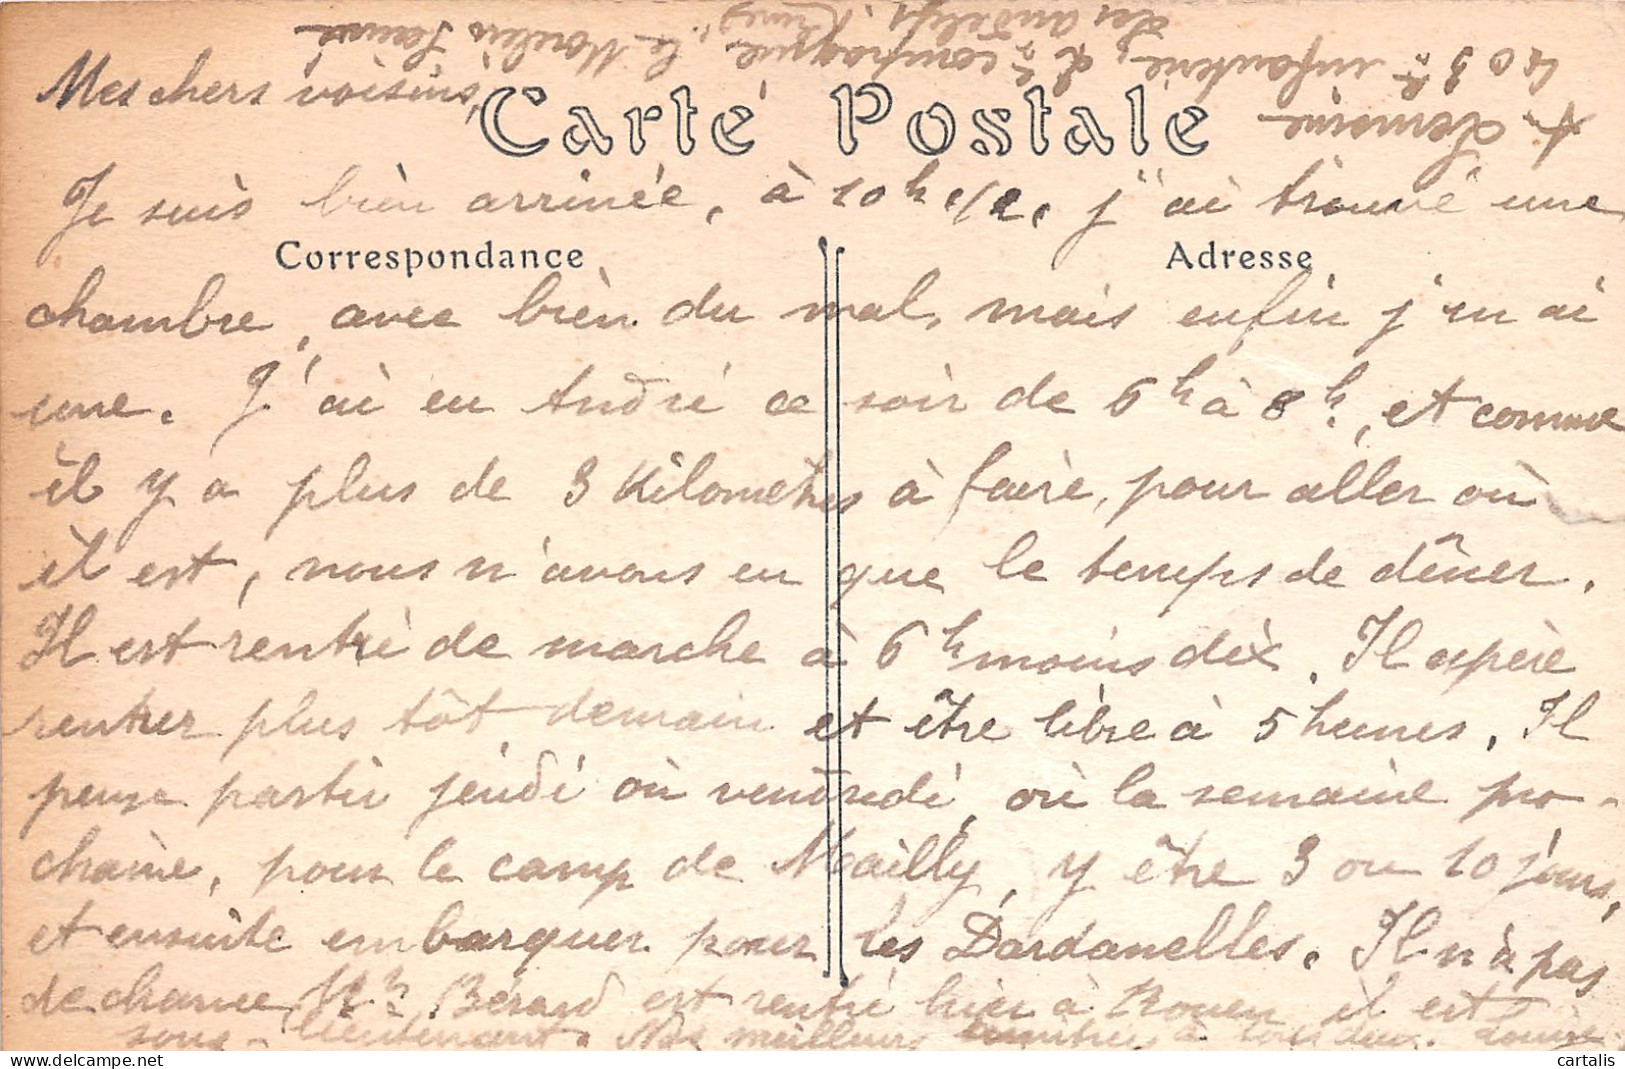 Mes chers voisins,
Carte Postale
A. Lemoine
403e infanterie, 2e compagnie, "le Moulin
des Andelys. Eure,
Je suis bien arrivée, à 10h 1/2, j'ai trouvé une
Correspondance
Adresse
chambre, avec bien du mal, mais enfin j'en ai
une. J'ai eu André ce soir de 6h à 8h, et comme
il y a plus de 3 kilomètres à faire, pour aller où
il est, nous n'avons eu que le temps de dîner.
Il est rentré de marche à 6h moins dix. Il espère
rentrer plus tôt demain et être libre à 5 heures. Il
pense partir jeudi ou vendredi, où la semaine pro-
chaine, pour le camp de Mailly, y être 3 ou 10 jours,
et ensuite embarquer pour les Dardanelles. Il n'à pas
de chance, Mr. Bérard est rentré hier à Rouen, il est
sous-lieutenant. Nos meilleurs amitiés à tous deux. Louise
cartalis